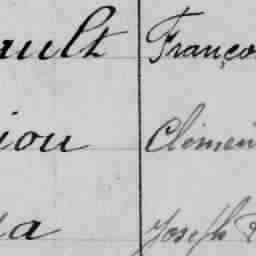 ault Franço
iou Clémen
a Joseph